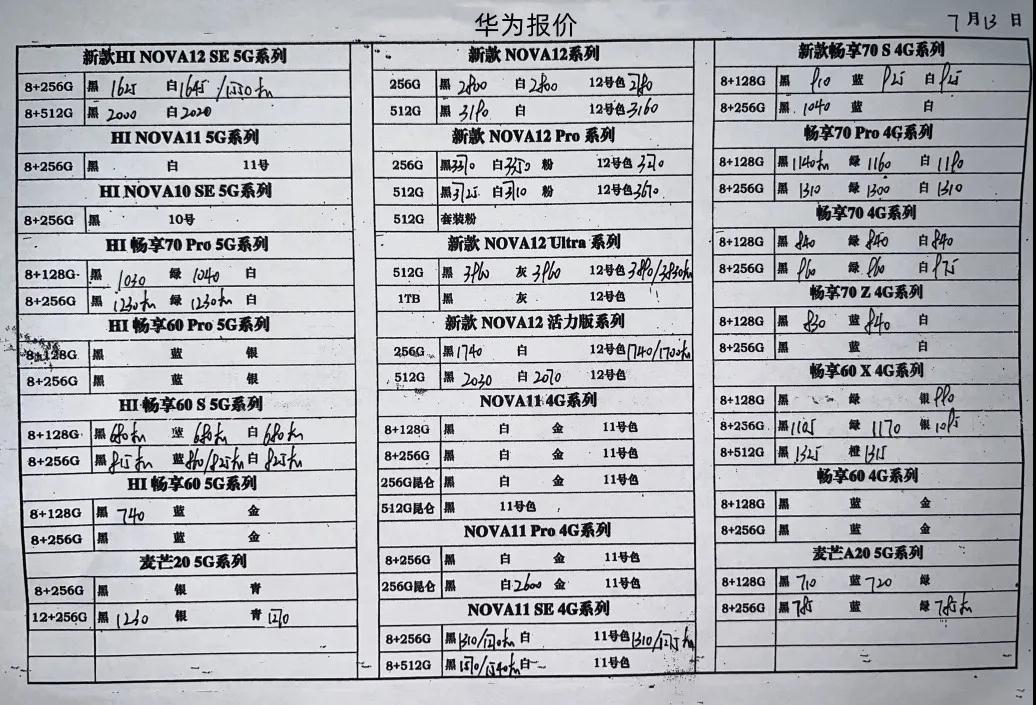 华为报价
7月13日
新款HI NOVA12 SE 5G系列
8+256G 黑 1625 白 1645 /1550
8+512G 黑 2000 白 2020
HI NOVA11 5G系列
8+256G 黑 白 11号
HI NOVA10 SE 5G系列
8+256G 黑 10号
HI 畅享70 Pro 5G系列
8+128G 黑 1030 绿 1040 白
8+256G 黑 1230 绿 1230 白
HI 畅享60 Pro 5G系列
8+128G 黑 蓝 银
8+256G 黑 蓝 银
HI 畅享60 S 5G系列
8+128G 黑 680 蓝 680 白 680
8+256G 黑 815 蓝 860/825 白 825
HI 畅享60 5G系列
8+128G 黑 740 蓝 金
8+256G 黑 蓝 金
麦芒20 5G系列
8+256G 黑 银 青
12+256G 黑 1230 银 青
新款 NOVA12系列
256G 黑 2800 白 2800 12号色 2780
512G 黑 3180 白 12号色 3160
新款 NOVA12 Pro 系列
256G 黑 白 粉 12号色
512G 黑 白 粉 12号色
512G 套装粉
新款 NOVA12 Ultra 系列
512G 黑 3960 灰 3960 12号色 3880/3830
1TB 黑 灰 12号色
新款 NOVA12 活力版系列
256G 黑 1740 白 12号色 1740/1700
512G 黑 2030 白 2070 12号色
NOVA11 4G系列
8+128G 黑 白 金 11号色
8+256G 黑 白 金 11号色
256G昆仑 黑 白 金 11号色
512G昆仑 黑 11号色
NOVA11 Pro 4G系列
8+256G 黑 白 金 11号色
256G昆仑 黑 白 2600 金 11号色
NOVA11 SE 4G系列
8+256G 黑 1310/ 白 11号色 1310/
8+512G 黑 白 11号色
新款畅享70 S 4G系列
8+128G 黑 810 蓝 825 白 825
8+256G 黑 1040 蓝 白
畅享70 Pro 4G系列
8+128G 黑 1140 绿 1160 白 1180
8+256G 黑 1310 绿 1300 白 1310
畅享70 4G系列
8+128G 黑 840 绿 840 白 840
8+256G 黑 960 绿 960 白 975
畅享70 Z 4G系列
8+128G 黑 830 蓝 840 白
8+256G 黑 蓝 白
畅享60 X 4G系列
8+128G 黑 绿 银
8+256G 黑 1105 绿 1170 银 1085
8+512G 黑 1325 橙 1315
畅享60 4G系列
8+128G 黑 蓝 金
8+256G 黑 蓝 金
麦芒A20 5G系列
8+128G 黑 710 蓝 720 绿
8+256G 黑 785 蓝 绿 785